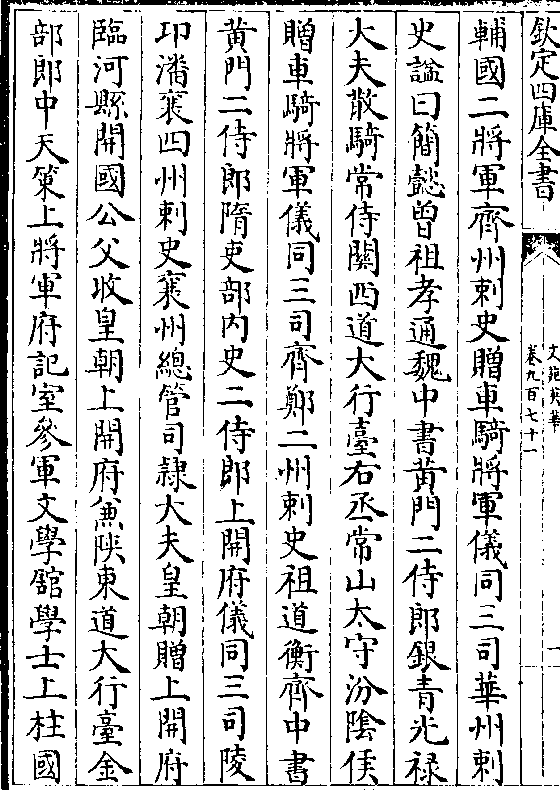 欽定四庫全書
文苑英華
卷九百七十一
一
輔國二將軍齊州刺史贈車騎將軍儀同三司華州刺
史謚曰簡懿曽祖孝通魏中書黄門二侍郎銀青光禄
大夫散騎常侍關西道大行臺右丞常山太守汾隂侯
贈車騎將軍儀同三司齊鄭二州刺史祖道衡齊中書
黄門二侍郎隋吏部内史二侍郎上開府儀同三司陵
卭潘襄四州刺史襄州總管司隷大夫皇朝贈上開府
臨河縣開國公父收皇朝上開府兼陜東道大行臺金
部郎中天策上將軍府記室參軍文學舘學士上柱國